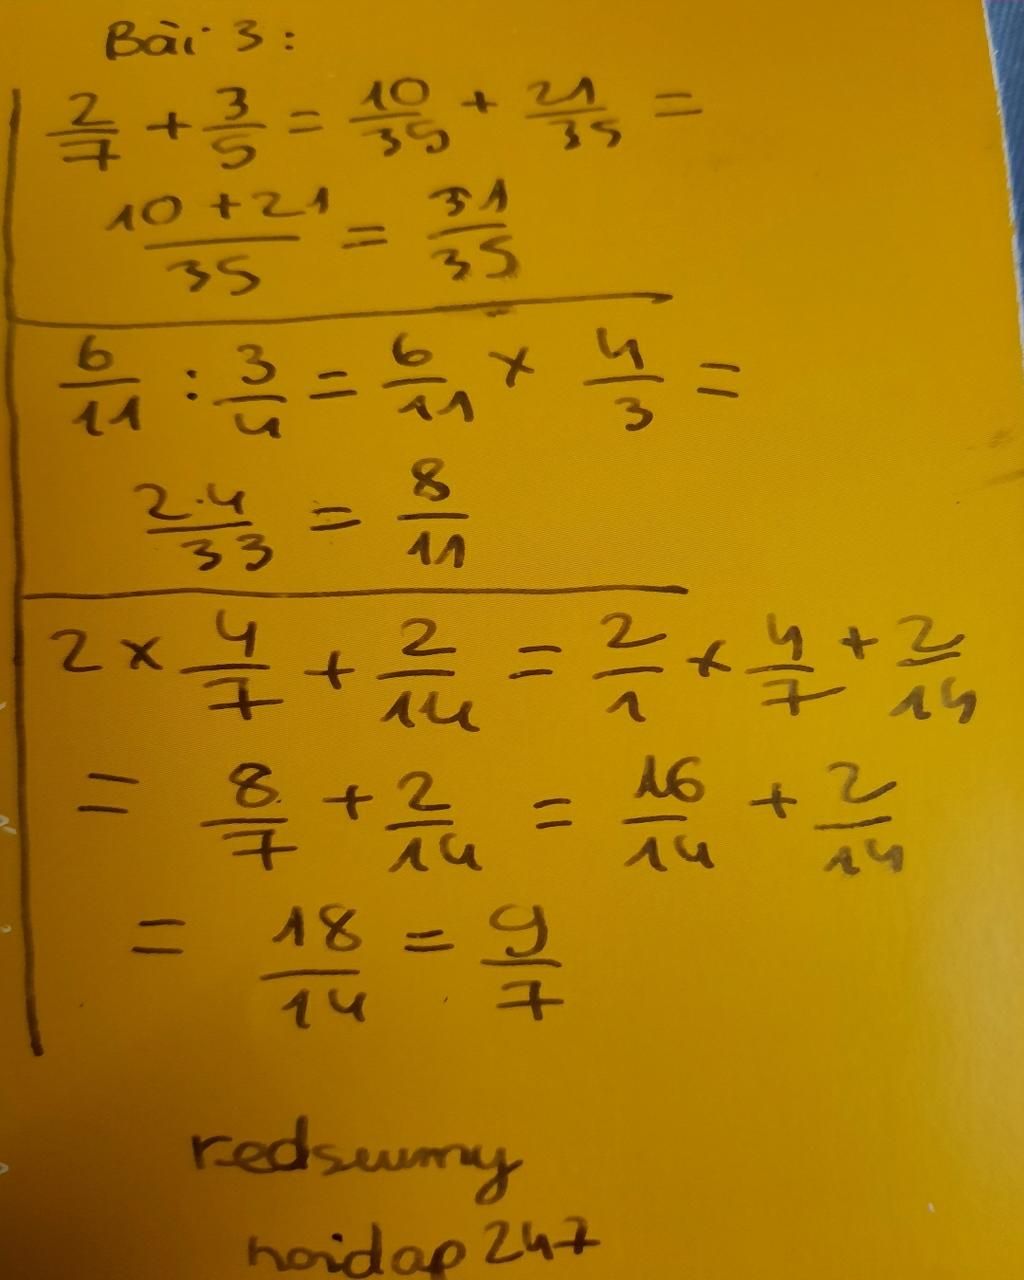 Bài 3:
2/7 + 3/5 = 10/35 + 21/35 =
10+21/35 = 31/35
6/11 : 3/4 = 6/11 × 4/3 =
2.4/33 = 8/11
2 × 4/7 + 2/14 = 2/1 × 4/7 + 2/14
= 8/7 + 2/14 = 16/14 + 2/14
= 18/14 = 9/7
redsumy
hoidap247